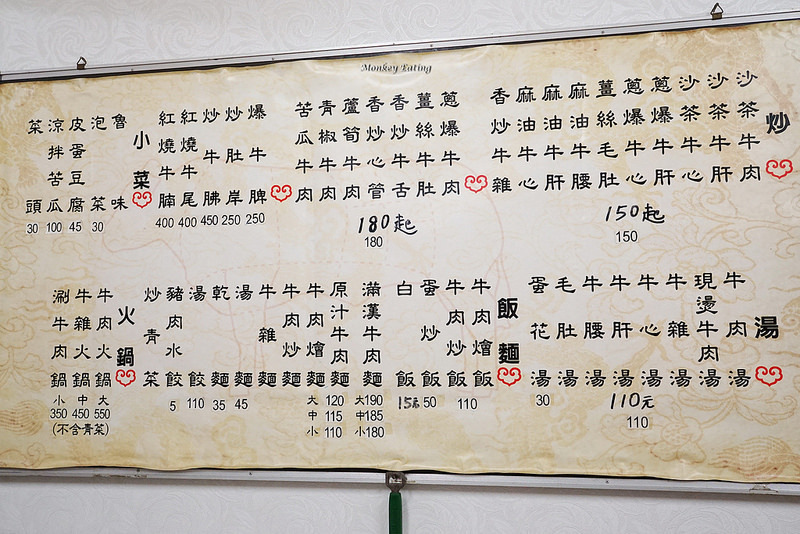 Monkey Eating
炒
沙茶牛肉
沙茶牛肝
沙茶牛心
蔥爆牛肝
蔥爆牛心
薑絲毛肚
麻油牛腰
麻油牛肝
麻油牛心
香炒牛雜
150起
150
蔥爆牛肉
薑絲牛肚
香炒牛舌
香炒心管
蘆筍牛肉
青椒牛肉
苦瓜牛肉
180起
180
爆牛脾
250
炒肚岸
250
炒牛胇
450
紅燒牛尾
400
紅燒牛腩
400
小菜
魯味
泡菜
30
皮蛋豆腐
45
涼拌苦瓜
100
菜頭
30
湯
牛肉湯
現燙牛肉湯
牛雜湯
牛心湯
牛肝湯
牛腰湯
毛肚湯
110元
110
蛋花湯
30
飯麵
牛肉燴飯
牛肉炒飯
110
蛋炒飯
50
白飯
滿漢牛肉麵
大190
中185
小180
原汁牛肉麵
大 120
中 115
小 110
牛肉燴麵
牛肉炒麵
牛雜麵
湯麵
45
乾麵
35
湯餃
110
豬肉水餃
5
炒青菜
火鍋
牛肉火鍋
大
550
牛雜火鍋
中
450
涮牛肉鍋
小
350
(不含青菜)